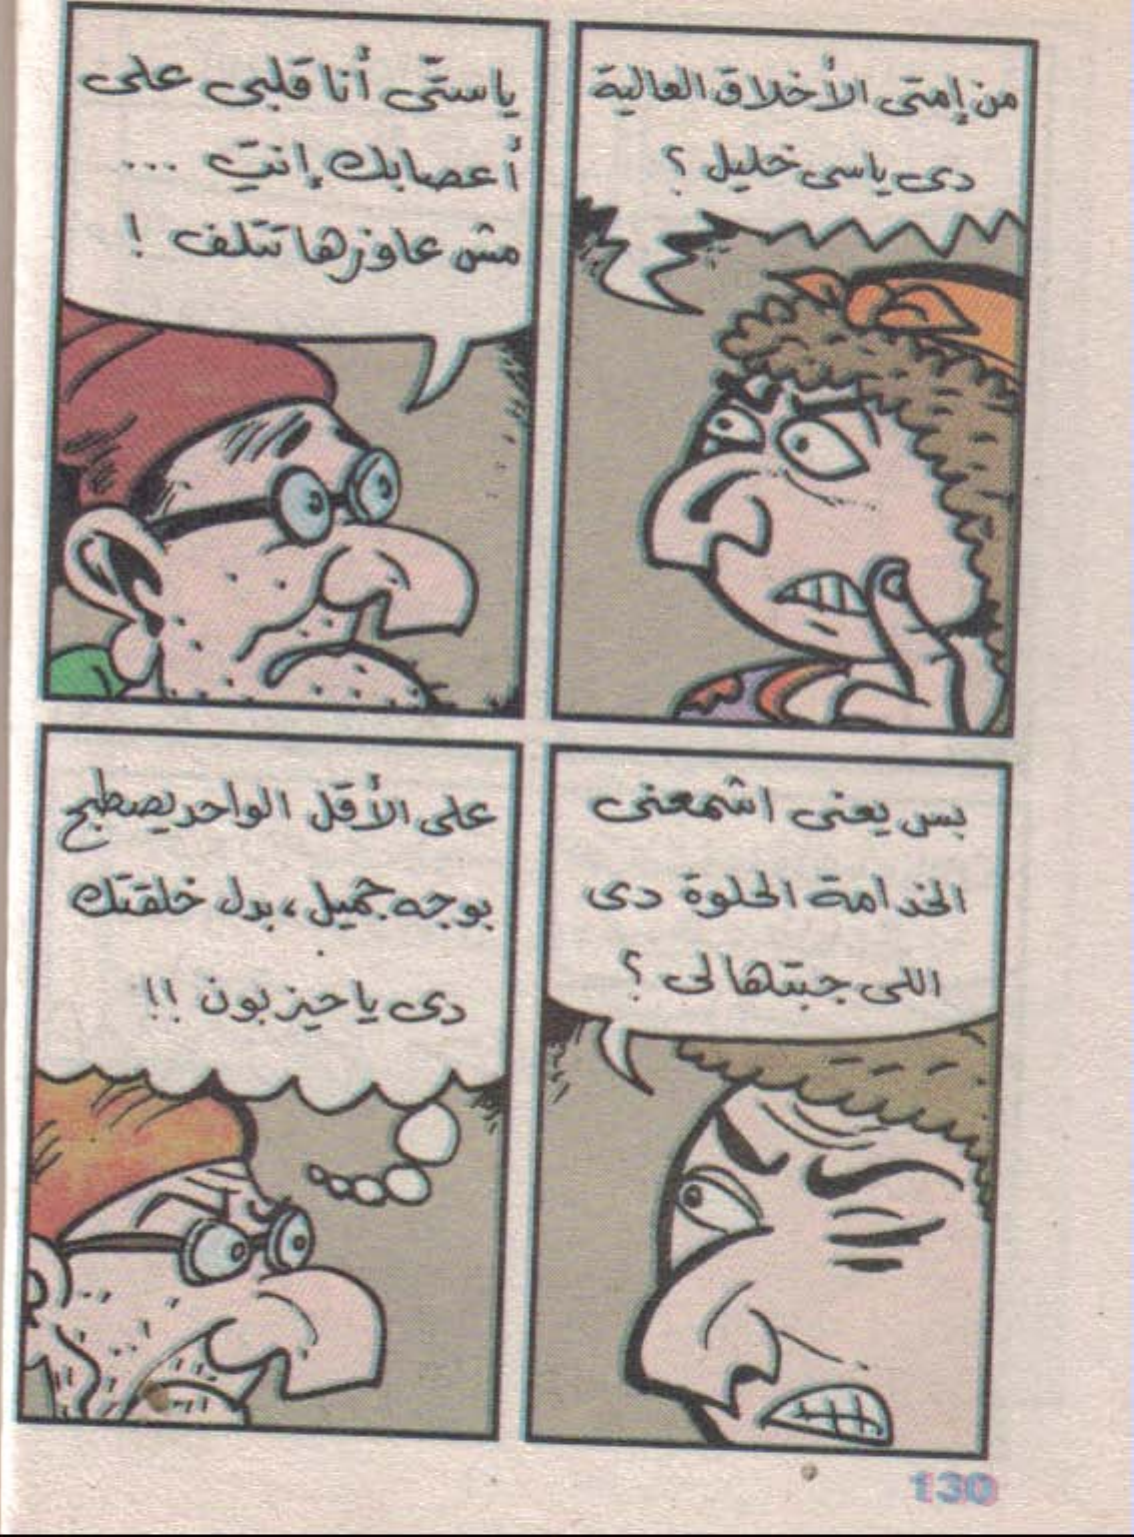 من إمتى الأخلاق العالية
دى ياسى خليل ؟
ياستى أنا قلبى على
أعصابك إنتِ ...
مش عاوزها تتلف !
بس يعنى اشمعنى
الخدامة الحلوة دى
اللى جبتهالى ؟
على الأقل الواحد يصطبح
بوجه جميل، بدل خلقتك
دى ياحيزبون !!
130